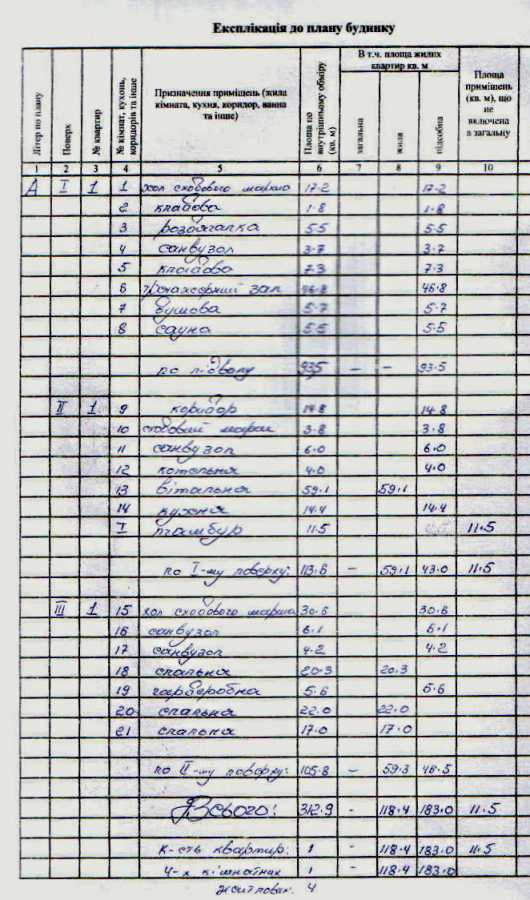 Експлікація до плану будинку
Літер по плану | Поверх | № квартир | № кімнат, кухонь, коридорів та інше | Призначення приміщень (жила кімната, кухня, коридор, ванна та інше) | Площа по внутрішньому обміру (кв. м) | В т.ч. площа жилих квартир кв. м | загальна | жила | підсобна | Площа приміщень (кв. м), що не включена в загальну
1 2 3 4 5 6 7 8 9 10
А I 1 1 хол сходового марша 17.2 17.2
2 кладова 1.8 1.8
3 роздягалка 5.5 5.5
4 санвузол 3.7 3.7
5 кладова 7.3 7.3
6 тренажерний зал 46.8 46.8
7 душова 5.7 5.7
8 сауна 5.5 5.5
по підвалу 93.5 – – 93.5
II 1 9 коридор 14.8 14.8
10 сходовий марш 3.8 3.8
11 санвузол 6.0 6.0
12 котельня 4.0 4.0
13 вітальна 59.1 59.1
14 кухня 14.4 14.4
I тамбур 11.5 11.5
по I-му поверху: 113.6 – 59.1 43.0 11.5
III 1 15 хол сходового марша 30.6 30.6
16 санвузол 6.1 6.1
17 санвузол 4.2 4.2
18 спальна 20.3 20.3
19 гардеробна 5.6 5.6
20 спальна 22.0 22.0
21 спальна 17.0 17.0
по II-му поверху: 105.8 – 59.3 46.5
Всього: 312.9 – 118.4 183.0 11.5
К-сть квартир: 1 – 118.4 183.0 11.5
4-х кімнатних 1 – 118.4 183.0
4